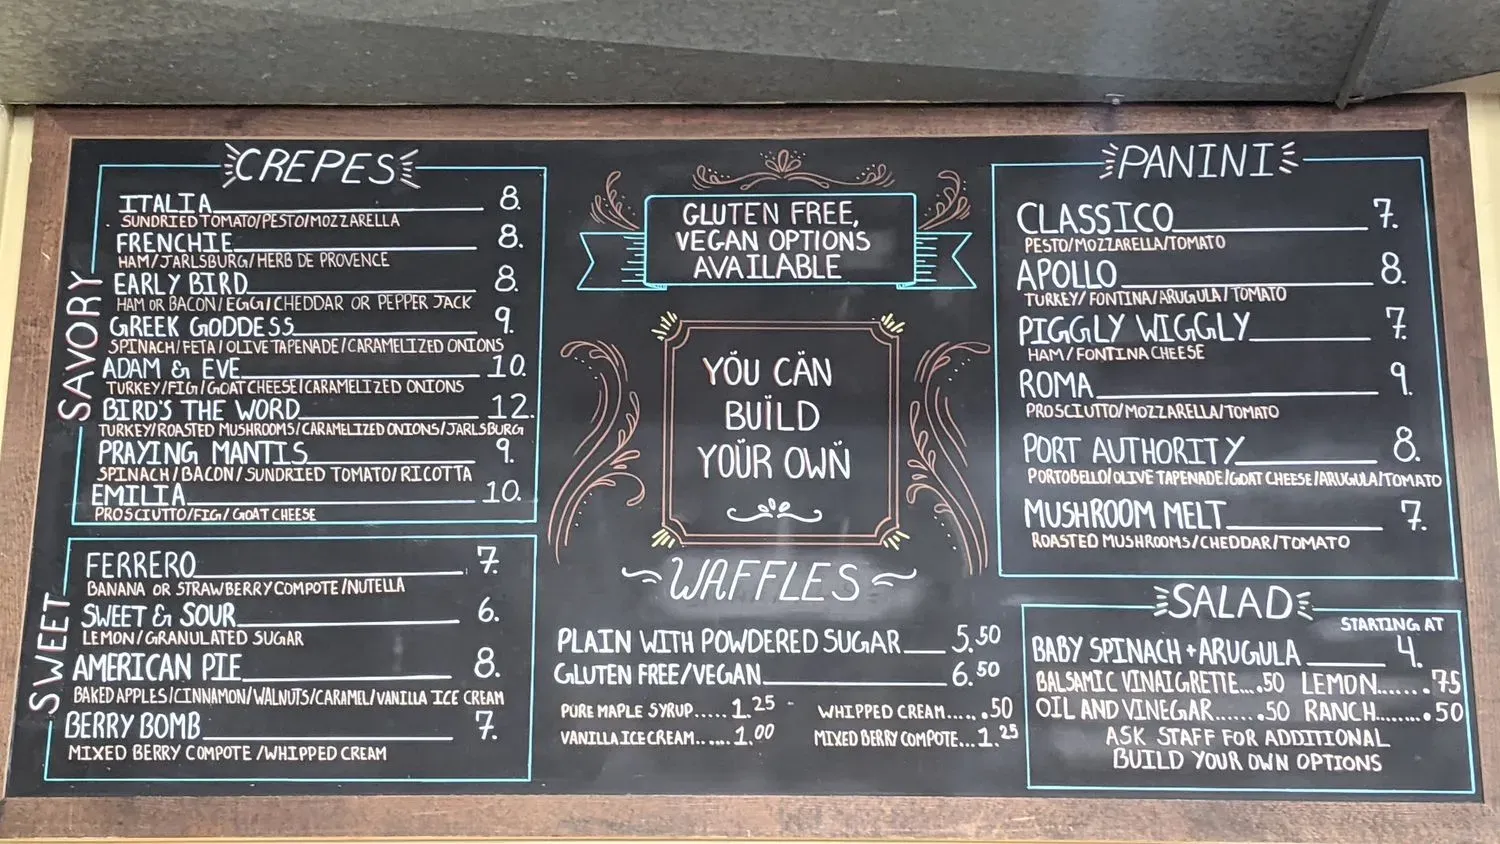 CREPES
SAVORY
ITALIA 8.
SUNDRIED TOMATO/PESTO/MOZZARELLA
FRENCHIE 8.
HAM/JARLSBURG/HERB DE PROVENCE
EARLY BIRD 8.
HAM OR BACON/EGG/CHEDDAR OR PEPPER JACK
GREEK GODDESS 9.
SPINACH/FETA/OLIVE TAPENADE/CARAMELIZED ONIONS
ADAM & EVE 10.
TURKEY/FIG/GOAT CHEESE/CARAMELIZED ONIONS
BIRD'S THE WORD 12.
TURKEY/ROASTED MUSHROOMS/CARAMELIZED ONIONS/JARLSBURG
PRAYING MANTIS 9.
SPINACH/BACON/SUNDRIED TOMATO/RICOTTA
EMILIA 10.
PROSCIUTTO/FIG/GOAT CHEESE
SWEET
FERRERO 7.
BANANA OR STRAWBERRY COMPOTE/NUTELLA
SWEET & SOUR 6.
LEMON/GRANULATED SUGAR
AMERICAN PIE 8.
BAKED APPLES/CINNAMON/WALNUTS/CARAMEL/VANILLA ICE CREAM
BERRY BOMB 7.
MIXED BERRY COMPOTE/WHIPPED CREAM
GLUTEN FREE,
VEGAN OPTIONS
AVAILABLE
YOU CAN
BUILD
YOUR OWN
WAFFLES
PLAIN WITH POWDERED SUGAR 5.50
GLUTEN FREE/VEGAN 6.50
PURE MAPLE SYRUP..... 1.25 WHIPPED CREAM..... .50
VANILLA ICE CREAM...... 1.00 MIXED BERRY COMPOTE... 1.25
PANINI
CLASSICO 7.
PESTO/MOZZARELLA/TOMATO
APOLLO 8.
TURKEY/FONTINA/ARUGULA/TOMATO
PIGGLY WIGGLY 7.
HAM/FONTINA CHEESE
ROMA 9.
PROSCIUTTO/MOZZARELLA/TOMATO
PORT AUTHORITY 8.
PORTOBELLO/OLIVE TAPENADE/GOAT CHEESE/ARUGULA/TOMATO
MUSHROOM MELT 7.
ROASTED MUSHROOMS/CHEDDAR/TOMATO
SALAD
STARTING AT
BABY SPINACH + ARUGULA 4.
BALSAMIC VINAIGRETTE... .50 LEMON...... .75
OIL AND VINEGAR....... .50 RANCH........ .50
ASK STAFF FOR ADDITIONAL
BUILD YOUR OWN OPTIONS